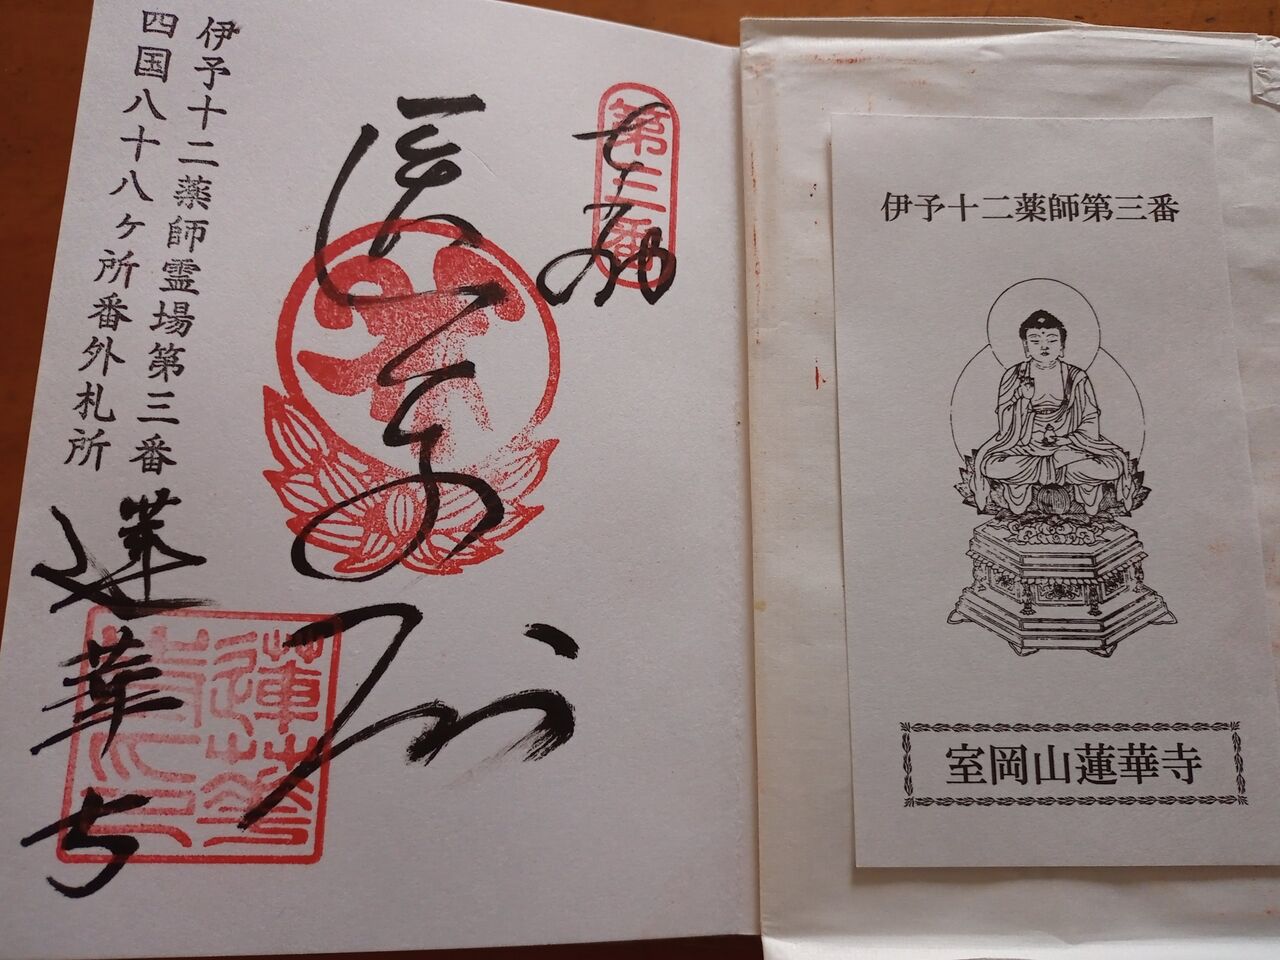 奉拝
第三番
医王尊
伊予十二薬師霊場第三番
四国八十八ヶ所番外札所
蓮華寺
蓮華寺印
伊予十二薬師第三番
室岡山蓮華寺